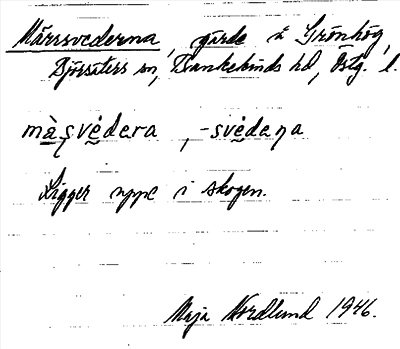 Mårssvederna, gärde å Grönhög,
Björsäters sn, Bankekinds hd, Östg. l.
màșvèdera, -svèdeṇa
Ligger uppe i skogen.
Maja Nordlund 1946.